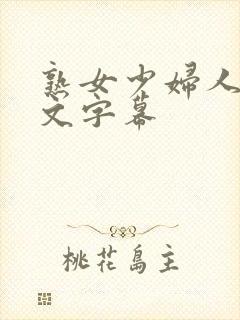 熟女少婦人
文字幕
桃花島主